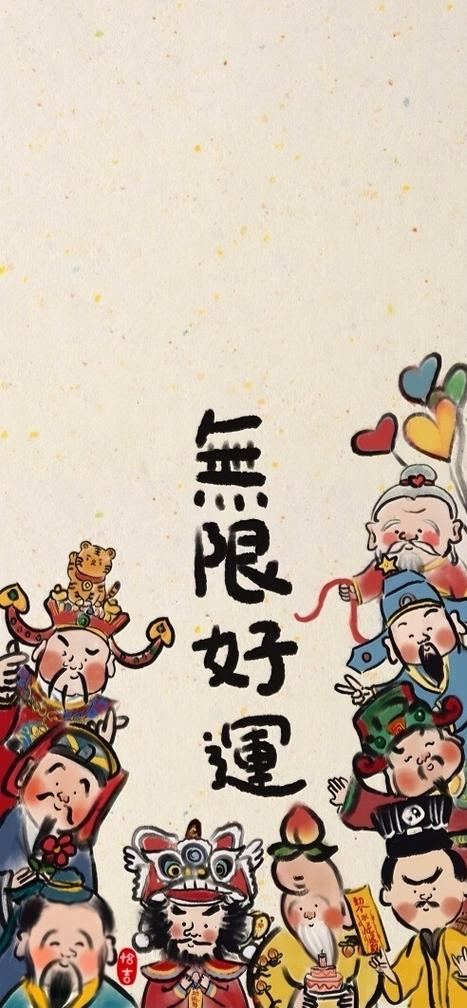 無限好運
恰吉